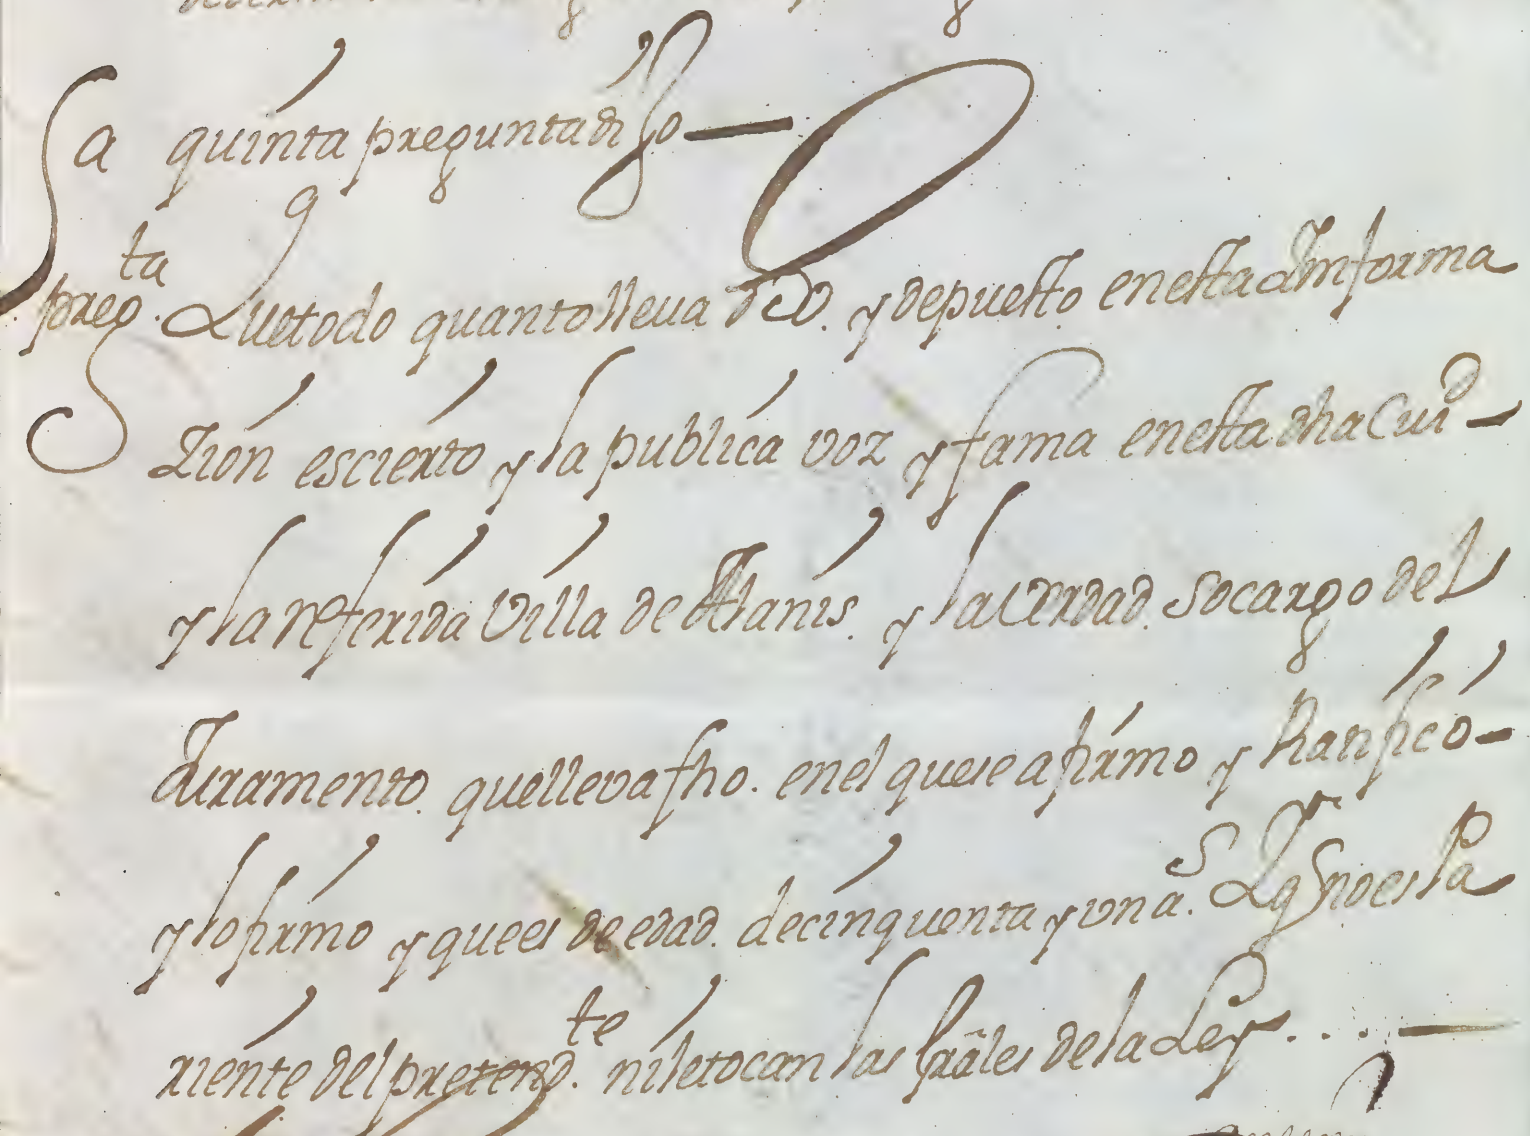 A la quinta pregunta dijo —
5ª preg.ta Que todo quanto lleva dho. y depuesto en esta Informa
zion es cierto y la publica voz y fama en esta dha Ciu.d —
y la referida Villa de Alanis. y la verdad. so cargo del
Juramento. que lleva fho. en el que se afirmo y Ratifico —
y lo firmo y que es de edad. de cinquenta y un a.s y q no es Pa
riente del pretend.te ni le tocan las grâles de la Ley. . . . —